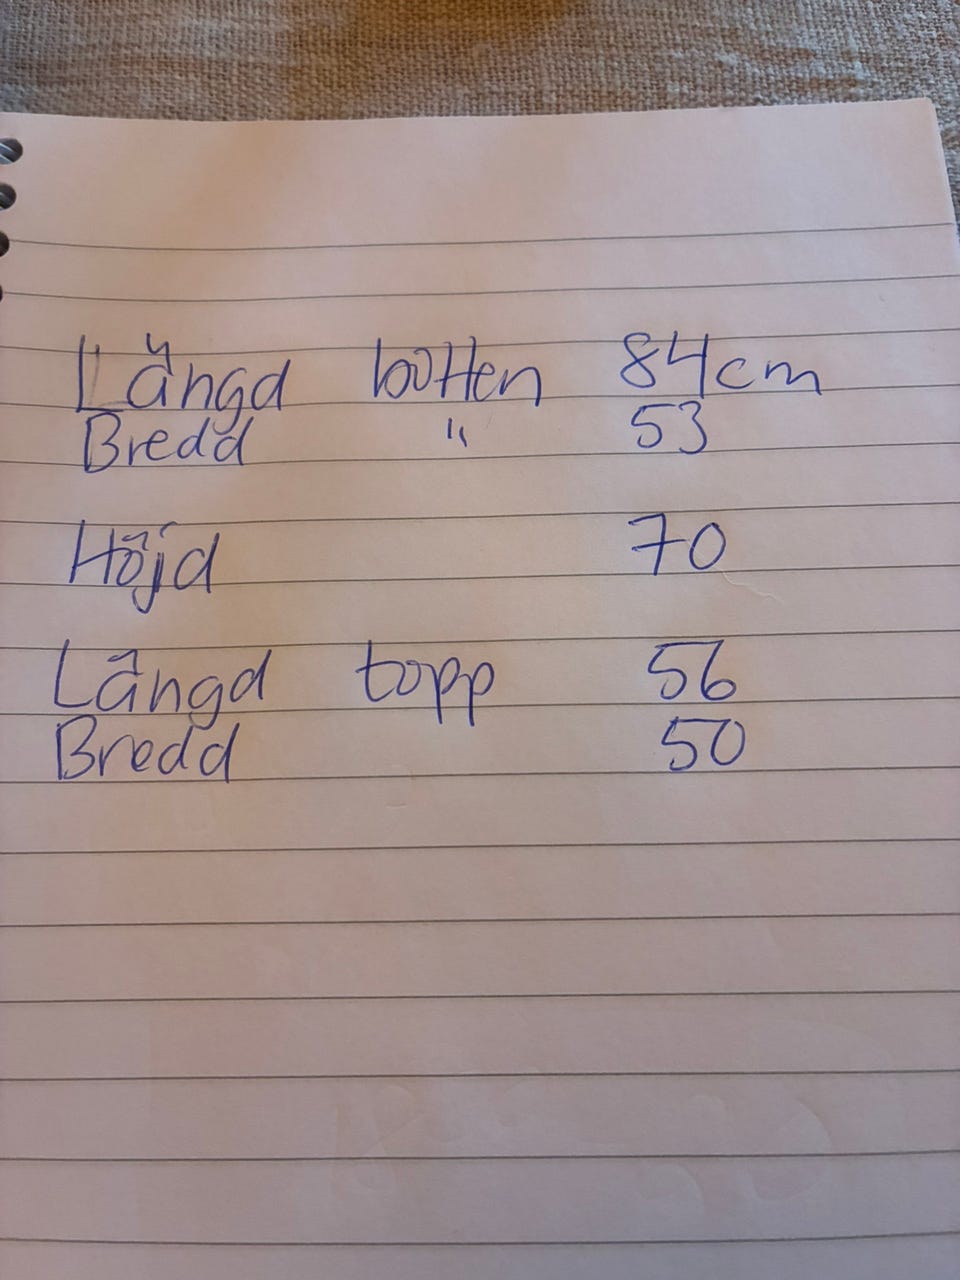 Längd botten 84cm
Bredd " 53
Höjd 70
Längd topp 56
Bredd 50